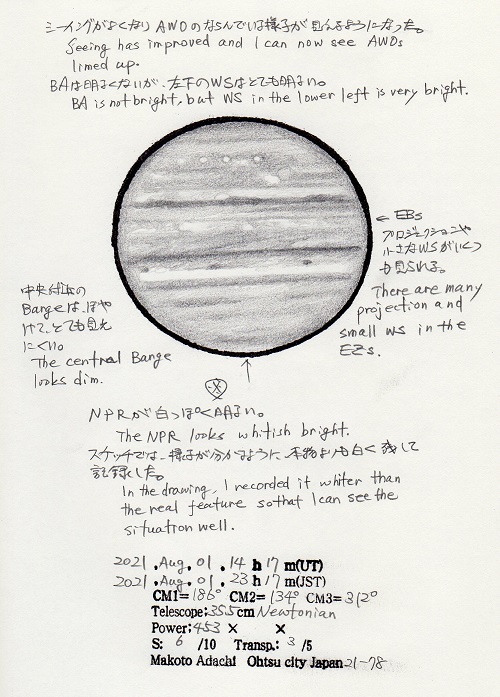 シーイングがよくなり AWOのならんでいる様子が 見えるようになった。
Seeing has improved and I can now see AWOs
limed up.
BAは明るくないが、左下のWSはとても明るい。
BA is not bright, but WS in the lower left is very bright.
← EBs
プロジェクションや
小さなWSがいくつ
も見られる。
There are many
projection and
small ws in the
EZs.
中央付近の
Bargeは、ぼや
けて、とても見え
にくい。
The central Barge
looks dim.
NPRが白っぽく明るい。
The NPR looks whitish bright.
スケッチでは、様子が分かるように、本物よりも白く残して
記録した。
In the drawing, I recorded it whiter than
the real feature so that I can see the
situation well.
2021 . Aug . 01 . 14 h 17 m(UT)
2021 . Aug . 01 . 23 h 17 m(JST)
CM1= 186° CM2= 134° CM3= 312°
Telescope; 35.5cm Newtonian
Power; 453 × ×
S: 6 /10 Transp.: 3 /5
Makoto Adachi Ohtsu city Japan 21-78